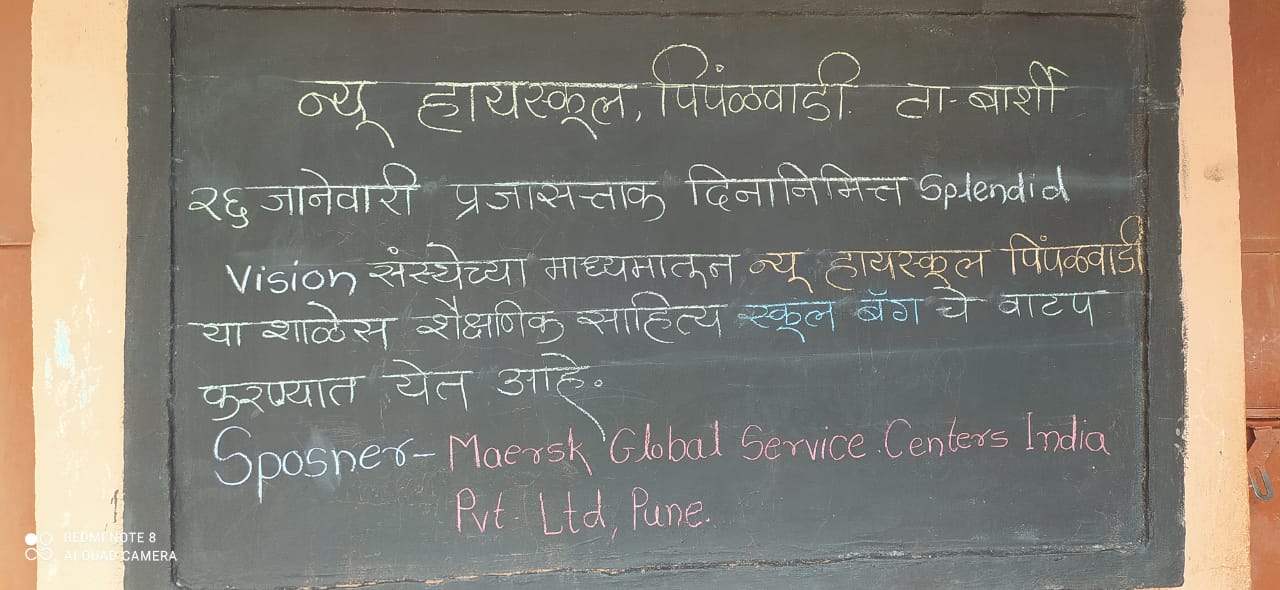 न्यू हायस्कूल, पिंपळवाडी. ता- बार्शी
२६ जानेवारी प्रजासत्ताक दिनानिमित्त Splendid
Vision संस्थेच्या माध्यमातून न्यू हायस्कूल पिंपळवाडी
या शाळेस शैक्षणिक साहित्य स्कूल बॅग चे वाटप
करण्यात येत आहे.
Sposner- Maersk Global Service. Centers India
Pvt. Ltd, Pune.
REDMI NOTE 8
AI QUAD CAMERA